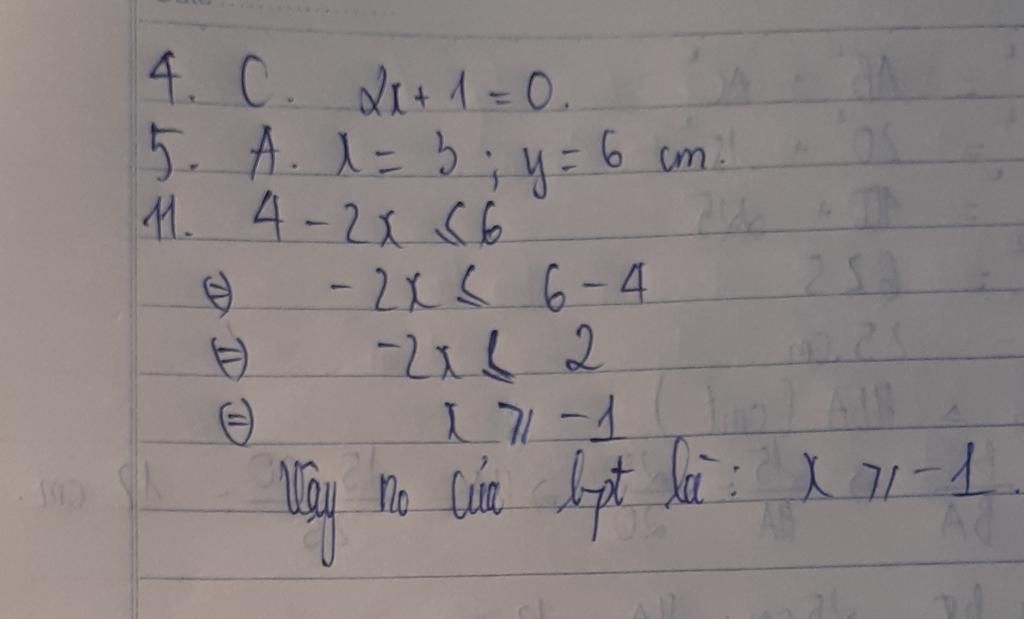 4. C. 2x + 1 = 0.
5. A. x = 3 ; y = 6 cm.
11. 4 - 2x ≤ 6
⇔ - 2x ≤ 6 - 4
⇔ -2x ≤ 2
⇔ x ≥ -1
Vậy no của bpt là : x ≥ -1.